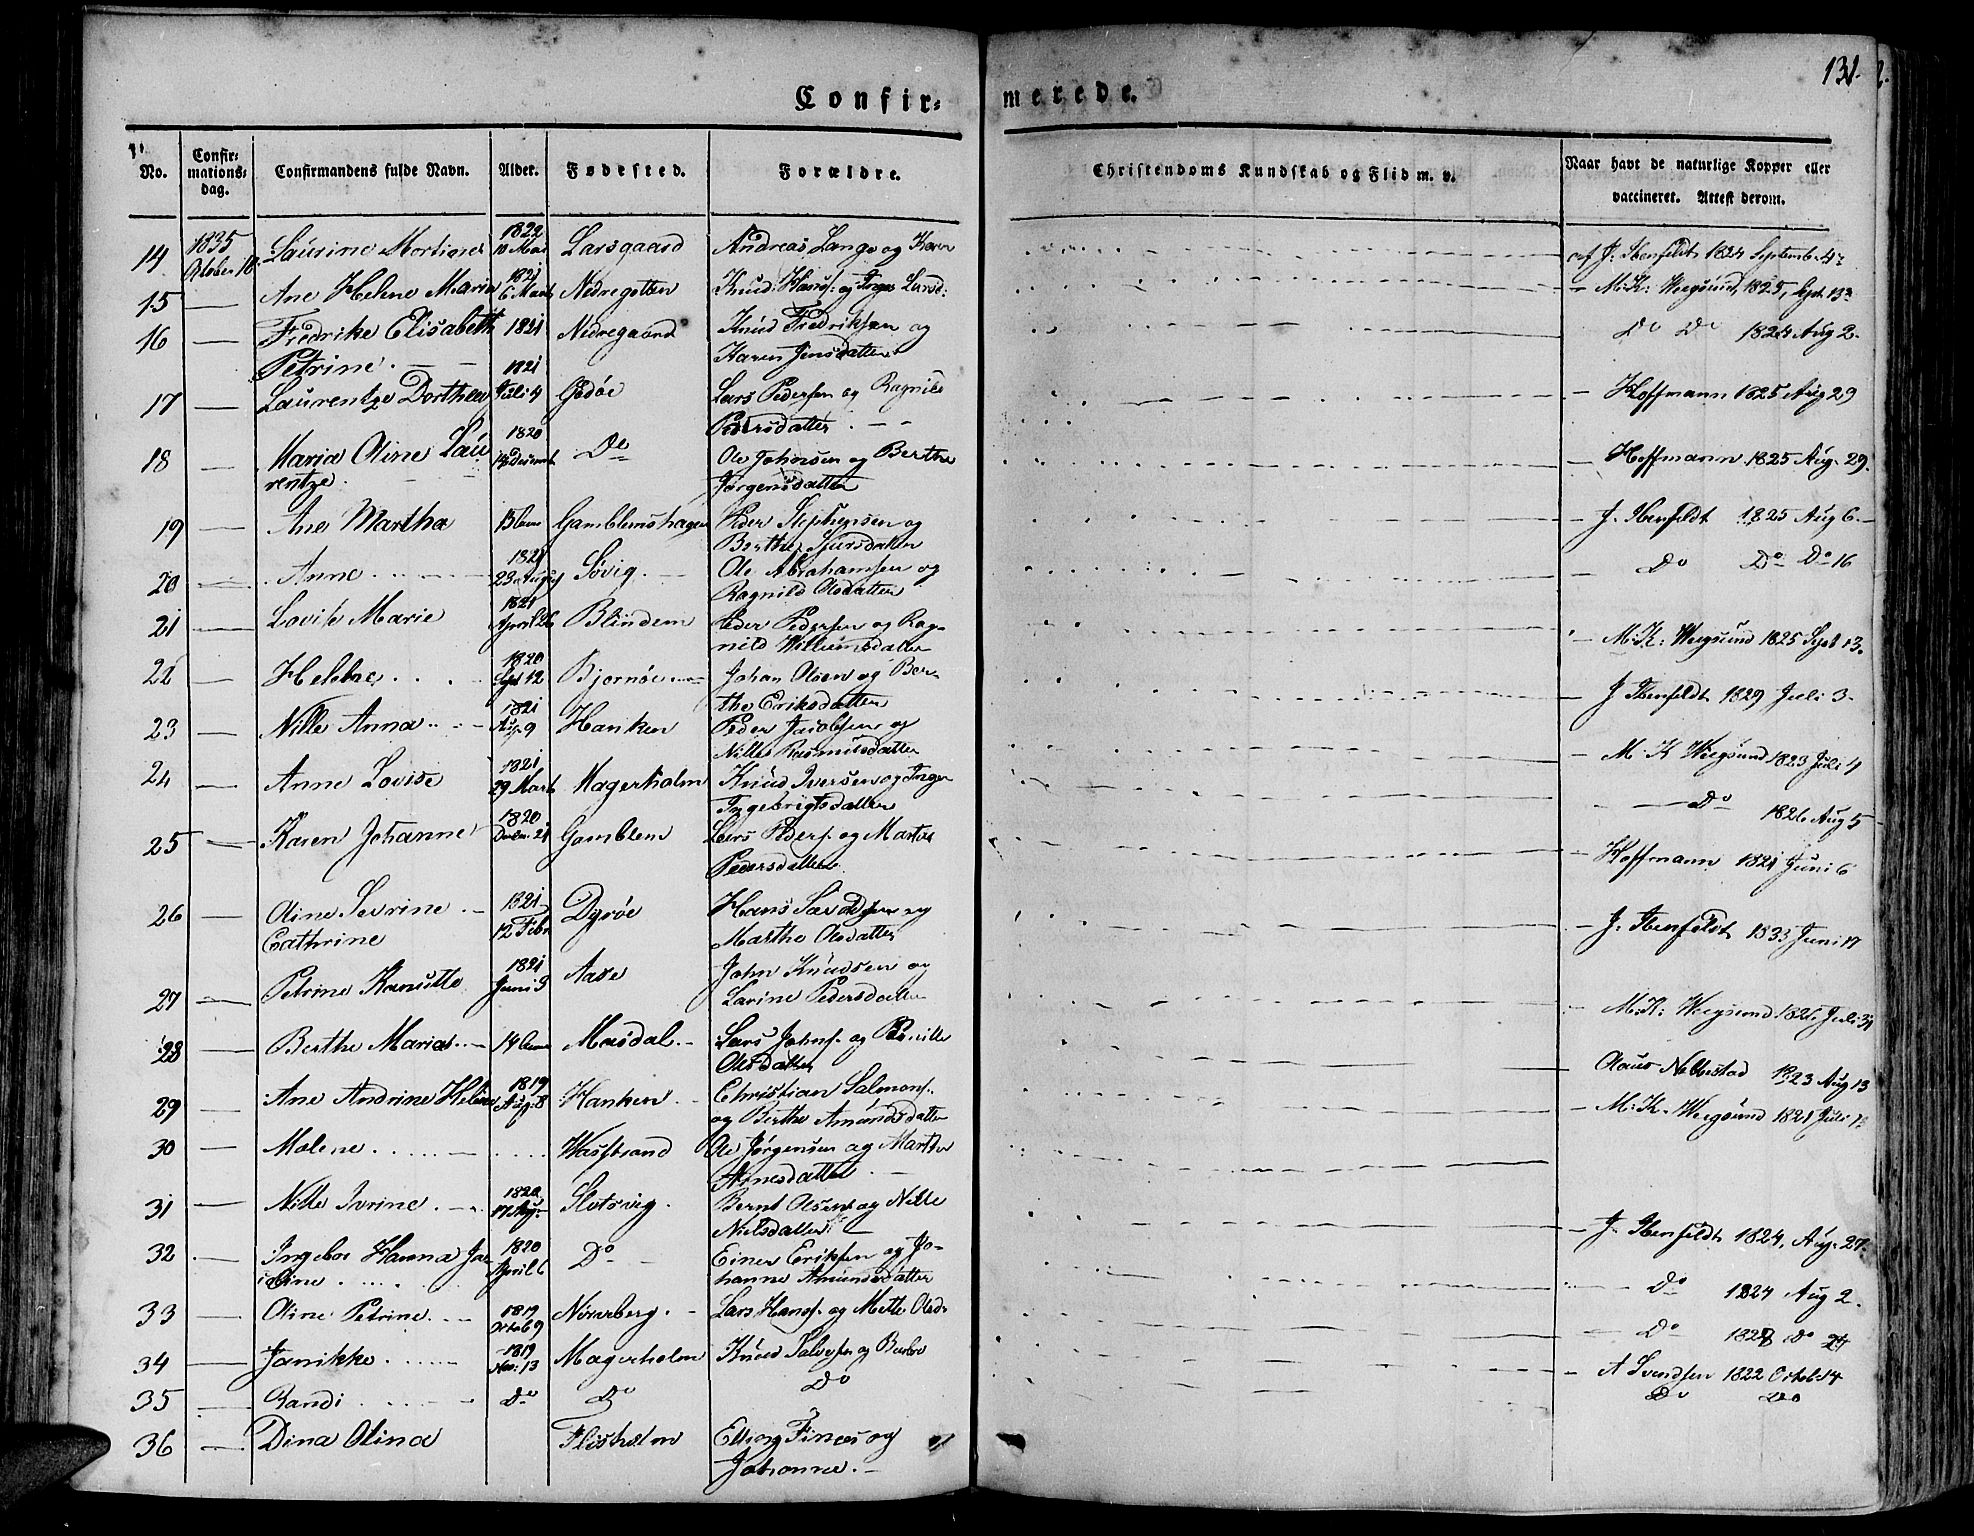 Confir=
merede.
131.
No.
Confir=
mations=
dag.
Confirmandens fulde Navn.
Alder.
Fødested.
Forældre.
Christendoms Kundskab og Flid m. v.
Naar havt de naturlige Kopper eller
vaccineret. Attest derom.
14 1835 October 18. Laurine 1822 10 Mai Larsgaard Andreas Lange og Karen af J. Ibenfeldt 1824 Septemb. 4
15 — Ane Helene Maria 1821 6 Marts Nedregotten Knud Hans: og Inger Larsd: — M: K: Weegsund, 1825, Sept 13
16 — Fredrike Elisabeth 1821 Nedregaard Knud Fredriksen og Do Do 1824 Aug 2.
Petrine. Karen Jensdatter
17 — Laurentze Dorthea 1821 Juli 4 Godøe Lars Pedersen og Ragnild — Hoffmann 1825 Aug 29
Pedersdatter
18 — Maria Oline Lau 1820 Do Ole Johnsen og Berthe — Hoffmann 1825 Aug. 29.
rentze. Jørgensdatter
19 — Ane Martha 15 Gamblemshagen Peder Stephensen og — J. Ibenfeldt 1825 Aug 6.
Berthe Sjursdatter
20 — Anne 1821 23 August Søvig. Ole Abrahamsen og Do Do Do 16
Ragnild Olsdatter
21 — Lovise Marie 1821 April 26 Blindem Peder Pedersen og Rag= — M: K: Weegsund 1825 Sept 13.
nild Willumsdatter
22 — Helene 1820 Sept 12 Bjørnøe Johan Olsen og Ber= — J Ibenfeldt 1829 Juli 3.
the Eriksdatter
23 — Nille Anna 1821 Aug. 9 Hanken Peder Jacobsen og — M. K Weegsund 1823 Juli 4
Nille Rasmusdatter
24 — Anne Lovise 1821 29 Marts Magerholm Knud Iversen og Inger — Do 1826 Aug 5
Ingebrigtsdatter
25 — Karen Johanne 1820 Decbr. 21 Gamblem Lars Peders. og Marthe — Hoffmann 1821 Juni 6
Pedersdatter
26 — Oline Severine 1821 12 Febr Dyrøe Hans og — J. Ibenfeldt 1833 Juni 17
Cathrine Marthe Olsdatter
27 — Petrine Kanutte 1821 Juni 3 Aase John Knudsen og — M: K: Weegsund 1826 Juli 31
Larine Pedersdatter
28 — Berthe Maria 14 Masdal. Lars Johns. og Pernille Olaus Nelbestad 1823 Aug 13
Olsdatter
29 — Ane Andrine Helene 1819 Aug. 8 Hanken Christian Salmons. — M: K. Weegsund 1821 Juli
og Berthe Amundsdatter
30 — Malene Wasstrand Ole Jørgensen og Marthe
Arnesdatter
31 — Nille Ivrine 1820 17 Aug. Slotsvig. Bernt Olsen og Nille — J. Ibenfeldt 1824, Aug. 27.
Nielsdatter
32 — Ingebor Hanna Ja 1820 April 6 Do Einer Eriksen og Jo= — Do 1824 Aug 2.
cobine hanne Amundsdatter
33 — Oline Petrine 1819 Octob 9 Nørreberg. Lars Hans. og Mette Olsd. — Do 1828 Do 24
34 — Janikke 1819 Nov. 13 Magerholm Knud Salvesen og Barbro — A Svendsen 1822 Octob. 14
35 — Randi Do Do Do Do Do
36 — Dina Olina Flisholm Elling Finnes og
Johanne.